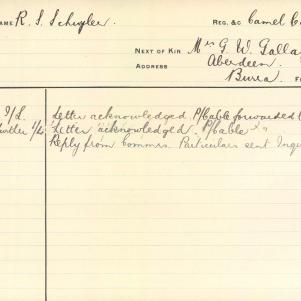 NAME R. S. Schuyler. REG. &C Camel C
NEXT OF KIN Mrs G. W. Galla
ADDRESS Aberdeen.
Burra F
I/L. Letter acknowledged. P/Cable forwarded t
1/ Letter acknowledged. P/Cable " "
Reply from Commrs. Particulars sent Inqu